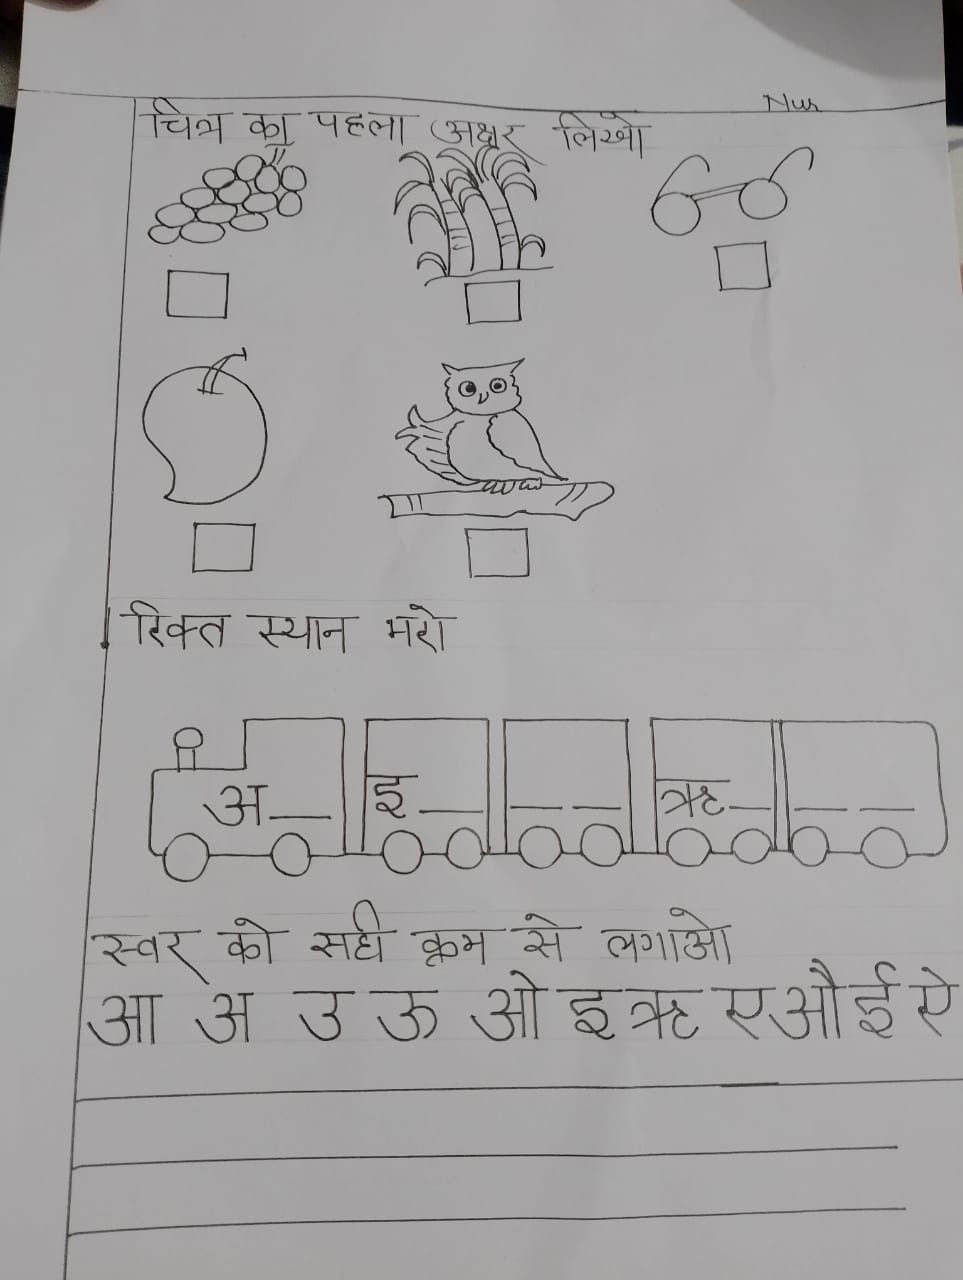 Nur
चित्र का पहला अक्षर लिखो
रिक्त स्थान भरो
अ__ इ__ __ __ ऋ__ __ __
स्वर को सही क्रम से लगाओ
आ अ उ ऊ ओ इ ऋ ए औ ई ऐ